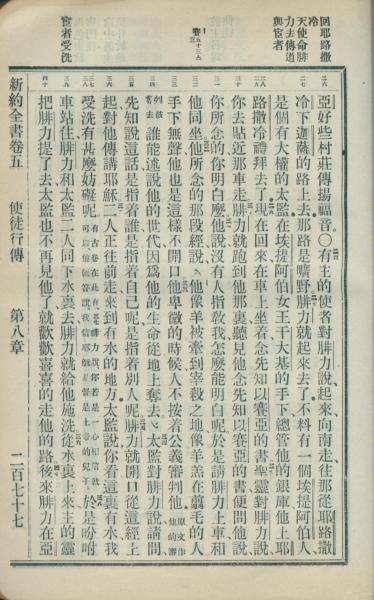 回耶路撒
冷
天使命腓
力去傳道
與宦者
賽五十三
宦者受洗
新約全書卷五
使徒行傳
第八章
二百七十七
亞好些村莊傳揚福音〇有主的使者對腓力說起來向南走往那從耶路撒
冷下迦薩的路上去那路是曠野腓力就起來去了不料有一個埃提阿伯人
是個有大權的太監在埃提阿伯女王干大基的手下總管他的銀庫他上耶
路撒冷禮拜去了現在回來在車上坐着念先知以賽亞的書聖靈對腓力說
你去貼近那車走腓力就跑到他那裏聽見他念先知以賽亞的書便問他說
你所念的你明白麼他說沒有人指教我怎麼能明白呢於是請腓力上車和
他同坐他所念的那段經說他像羊被牽到宰殺之地像羊羔在剪毛的人
手下無聲他也是這樣不開口他卑微的時候人不按着公義審判他原文作他的審
判被奪去誰能述說他的世代因爲他的生命從地上奪去太監對腓力說請問
先知說這話是指着誰是指着自己呢是指着別人呢腓力就開口從這經上
起對他傳講耶穌二人正往前走來到有水的地方太監說你看這裏有水我
受洗有甚麼妨礙呢有古卷在此有腓力說你若是一心相信就可以他回答說我信耶穌基督是上帝的兒子於是吩咐
車站住腓力和太監二人同下水裏去腓力就給他施洗從水裏上來主的靈
把腓力提了去太監也不再見他了就歡歡喜喜的走他的路後來腓力在亞